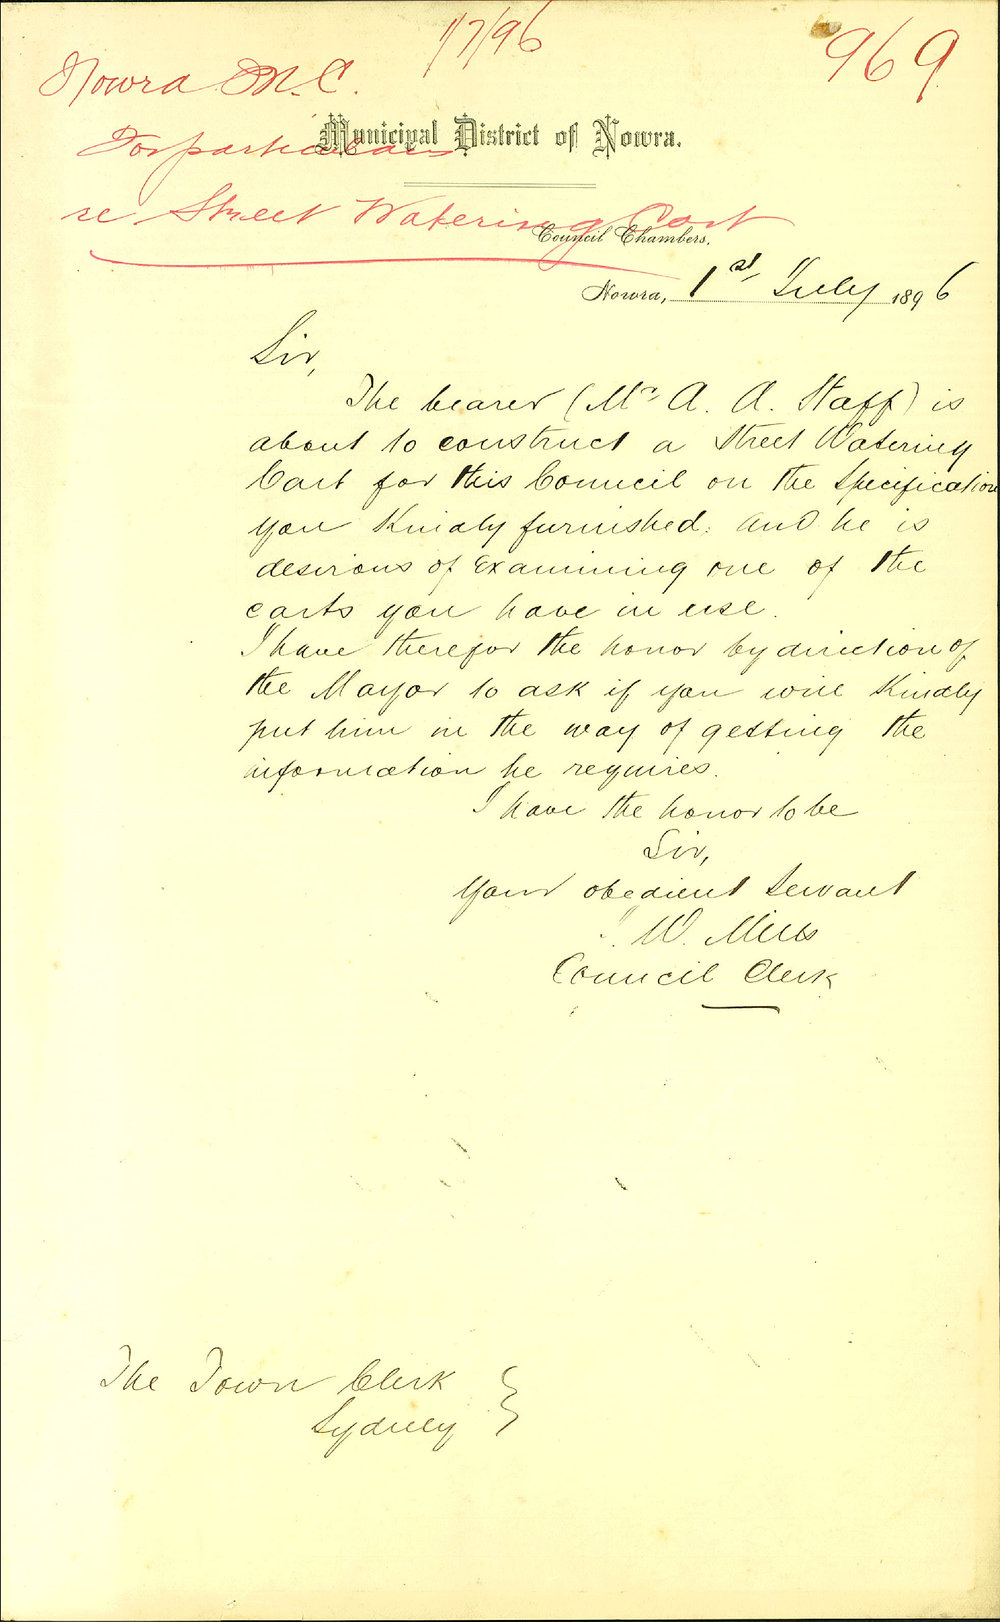 1/7/96
969
Nowra M.C.
Municipal District of Nowra.
For particulars
re Street Watering Cart
Council Chambers,
Nowra, 1st July 1896
Sir,
The bearer (Mr A. A. Staff) is
about to construct a Street Watering
Cart for this Council on the Specification
you Kindly furnished. and he is
desirous of Examining one of the
carts you have in use.
I have therefor the honor by direction of
the Mayor to ask if you will Kindly
put him in the way of getting the
information he requires.
I have the honor to be
Sir,
Your obedient Servant
W. Mills
Council Clerk
The Town Clerk
Sydney